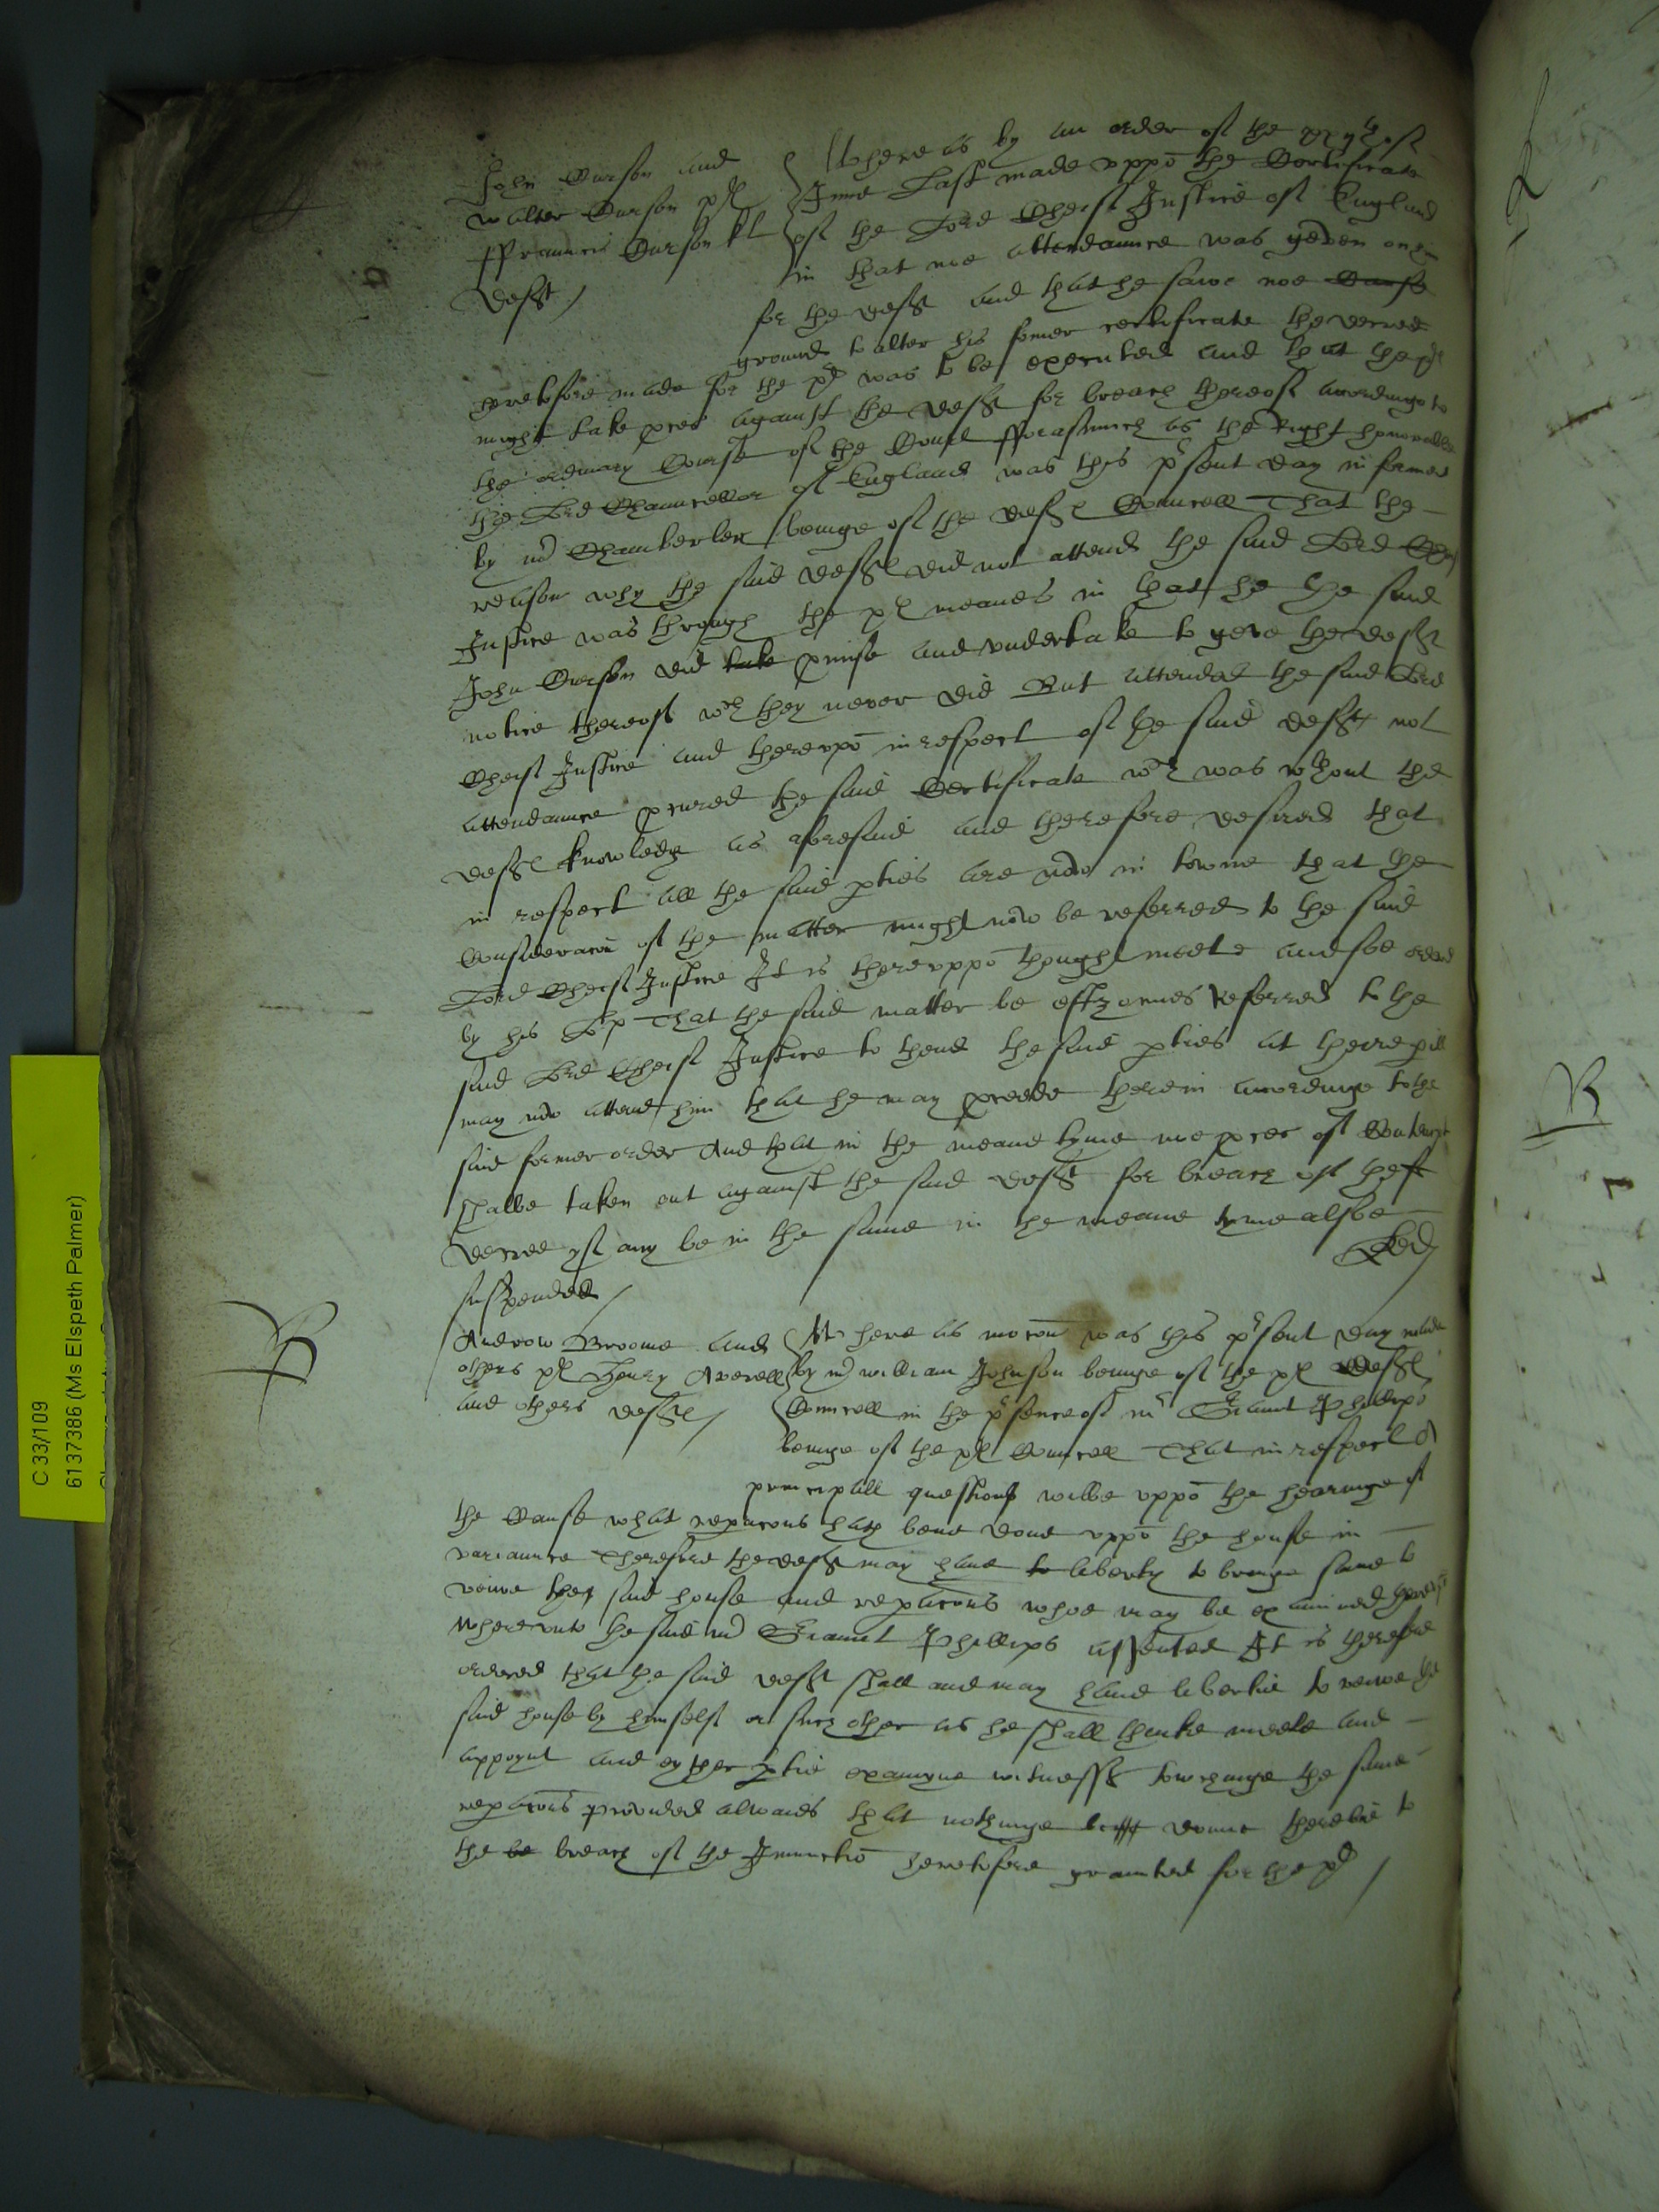 John Curson and
Walter Curson pl
Ffrauncis Curson kt
deft /
Whereas by an order of the of
June Last made uppō the Certificate
of the Lord Cheif Justice of England
in that noe attendaunce was geven on him
for the deft and that he sawe noe Cause
grounde to alter his former certificate the decree
heretofore made for the pl was to be executed and that the pl
might take pces against the deft for breach thereof accordinge to
the ordinary Course of the Court fforasmuch as the Right honorable
the Lord Chauncellor of England was this psent day informed
by mr Chamberlen beinge of the deftes Councell That the
reason why the said deftes did not attend the said Lord Cheif
Justice was through the pl meanes in that he the said
John Curson did take pmise and undertake to geve the deft
notice thereof wch they never did But attended the said Lord
Cheif Justice and thereuppō in respect of the said deftes not
attendaunce pcured the said Certificate wch was wthout the
deftes knowledge as aforesaid and therefore desired that
in respect all the said pties are now in towne that the
Consideracōn of the matter might now be referred to the said
Lord Cheif Justice It is thereuppō thought meete and soe ordered
by his Lp That the said matter be eftsones Referred to the
said Lord Cheif Justice to thend the said pties at theire pill
may now attend him that he may pceede therein accordinge to the
said former order And that in the meane tyme noe pces of Contempt
shalbe taken out against the said deft for breach of the
decree yf any be in the same in the meane tyme alsoe
suspended /
Andrew Broome and
others pl Henry Averell
and others deftes /
Whereas mocōn was this psent day made
by mr william Johnson beinge of the pl deftes
Councell in the psence of mr Sriaunt Phillips
beinge of the pl Councell That in respect
principall questions wilbe uppō the hearinge of
the Cause what repacōns hath bene done uppō the house in
variaunce Therefore the deft may have to liberty to bringe some to
veiwe the said house and repacōns whoe may be examined thereof
Whereunto the said mr Sriaunt Phillips assented It is therefore
ordered that the said deft shall and may have libertie to veiwe the
said house by himself or such other as he shall thinke meete and
appoynt and eyther ptie examyne witnesses towchinge the same
repacōns provided alwaies that nothinge donne thereby to
the be breach of the Iniunctiō heretofore graunted for the pl /
C 33/109
6137386 (Ms Elspeth Palmer)